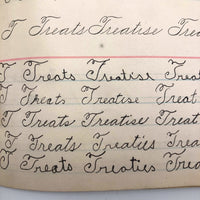 T Treats Treatise Trea
T Treats Treatise Treat
T Theats Treatise Treat
T Treatise Treatise Treat
T Treats Treaties Trea
T Treats Treaties Trea